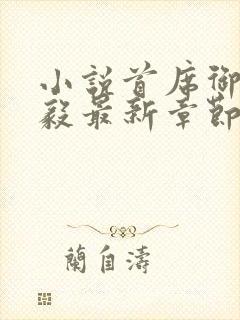 小說首席御
毅最新章節
蘭自濤